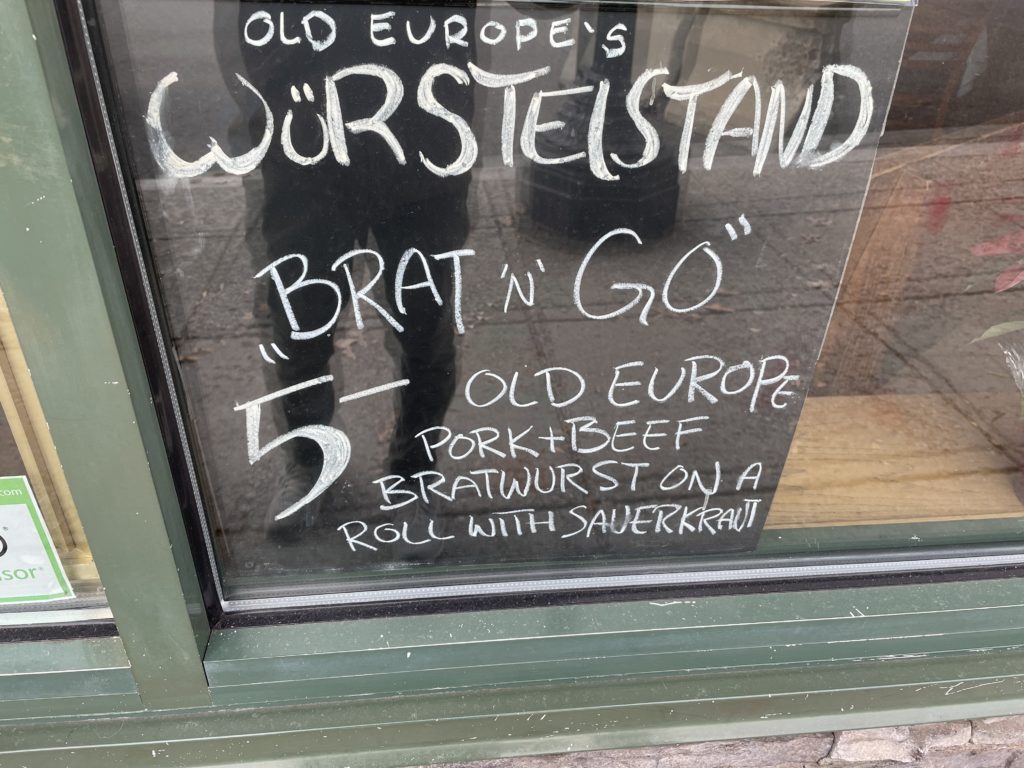 OLD EUROPE'S
WÜRSTElSTAND
"BRAT 'N' GO"
"5- OLD EUROPE
PORK+BEEF
BRATWURST ON A
ROLL WITH SAUERKRAUT
.com
®
sor®